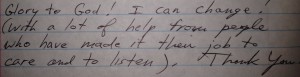 Glory to God! I can change!
(with a lot of help from people
who have made it their job to
care and to listen). Thank You